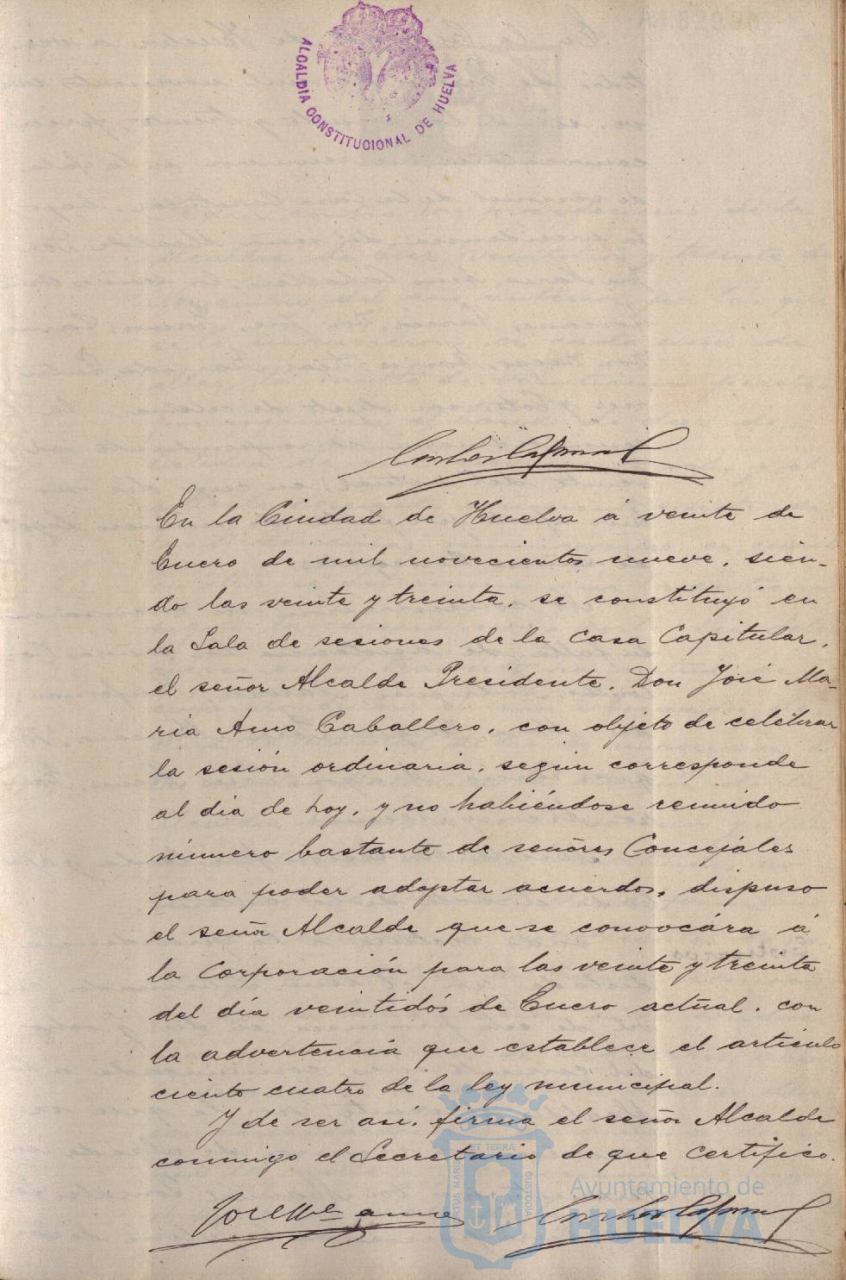 ALCALDÍA CONSTITUCIONAL DE HUELVA
En la Ciudad de Huelva á veinte de
Enero de mil novecientos nueve, sien-
do las veinte y treinta, se constituyó en
la Sala de sesiones de la Casa Capitular,
el señor Alcalde Presidente, Don José Ma-
ria Amo Caballero, con objeto de celebrar
la sesión ordinaria, según corresponde
al dia de hoy, y no habiéndose reunido
número bastante de señores Concejales
para poder adoptar acuerdos, dispuso
el señor Alcalde que se convocára á
la Corporación para las veinte y treinta
del día veintidós de Enero actual, con
la advertencia que establece el artículo
ciento cuatro de la ley municipal.
Y de ser así, firma el señor Alcalde
conmigo el Secretario de que certifico.
José Mª Amo
Ayuntamiento de
HUELVA